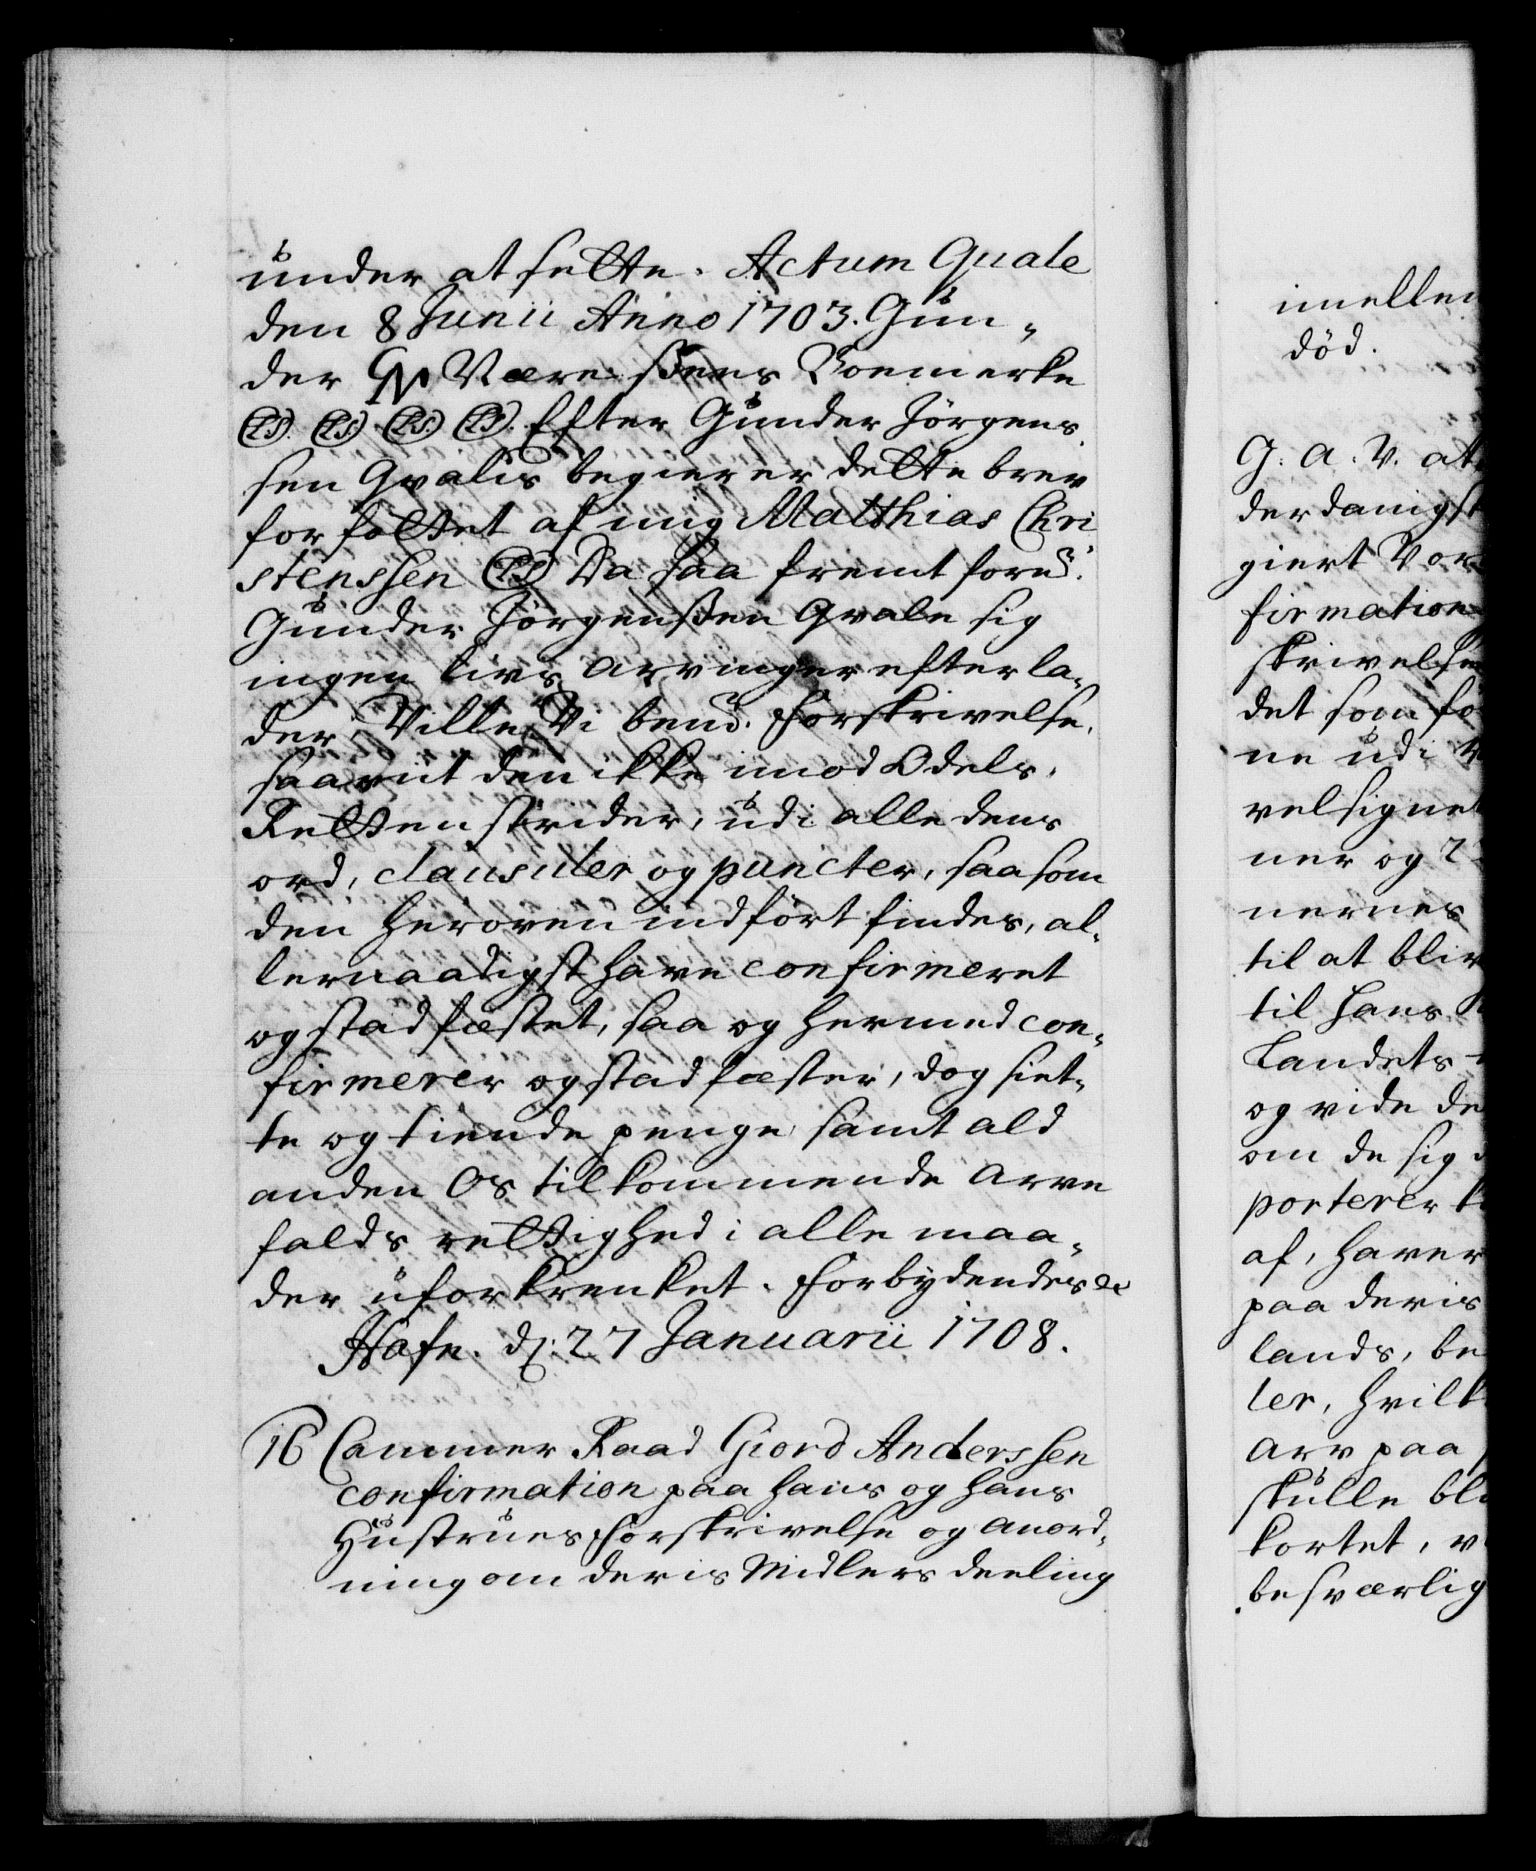 under at sette. Actum Quale
den 8 Junii Anno 1703. Gun-
der Værissens Boemerke
(LS). (LS). (LS) (LS). Efter Gunder Jörgens.
sen Qvalis begierer dette brev
forfattet af mig Matthias Chri
stenssen (LS) Da saa fremt forn.
Gunder Jörgenssen Qvale sig
ingen livs arvinger efterla-
der, Ville Vi bemt. Forskrivelse,
saavit den ikke imod Odels-
Retten strider, udi alle dens
ord, clausuler og puncter, saasom
den heroven indfört findes, al-
lernaadigst have confirmeret
og stadfæstet, saa og hermed con-
firmerer og stadfæster, dog siet-
te og tiende penge samt ald
anden Os tilkommende arve
falds rettighed i alle maa-
der uforkrenket. Forbydendes &c
Hafn. d: 27 Januarii 1708.
16 Cammer Raad Giord Anderssen
confirmation paa hans og hans
Hustrues Forskrivelse og anord-
ning om deris Midlers deeling
imellem
död.
G. A. V. at
derdanigst
giert Vor
firmation
skrivelse
det som fo
ne udi
velsignet
ner og
nernes
til at bliv
til hans
Landets
og vide de
om de sig
porterer
af, haver
paa deris
lands, be
ler, hvilk
arv paa
skulle bl
kortet, v
besværlig